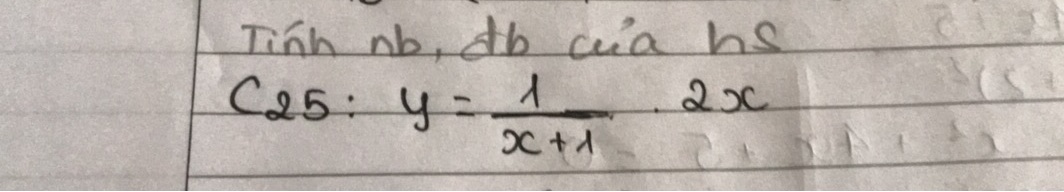 Tính nb, đb của hs
C25: y = 1/(x+1) . 2x